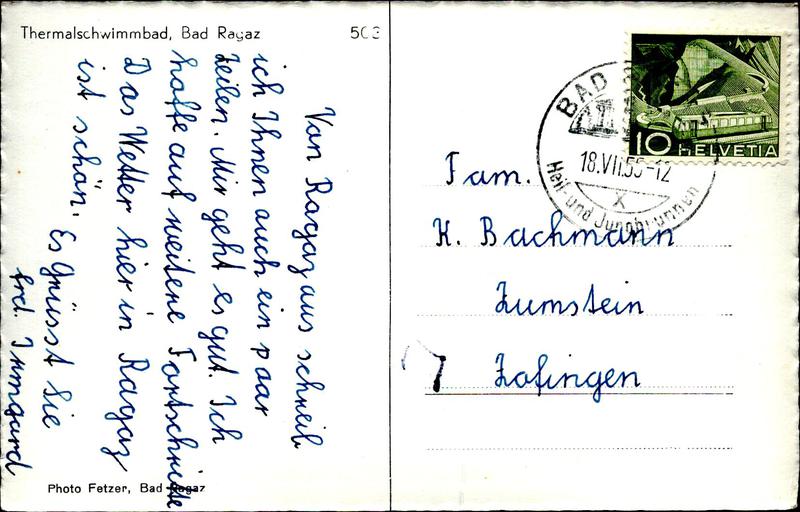 Thermalschwimmbad, Bad Ragaz
Von Ragaz aus schreib
ich Ihnen auch ein paar
Zeilen. Mir geht es gut. Ich
hoffe auf weitere Fortschritte
Das Wetter hier in Ragaz
ist schön. Es Grüsst Sie
frd. Irmgard
Photo Fetzer, Bad Ragaz
BAD
18.VII.55-12
X
Heil- und Jungbrunnen
10 HELVETIA
Fam.
K. Bachmann
Zumstein
Zofingen